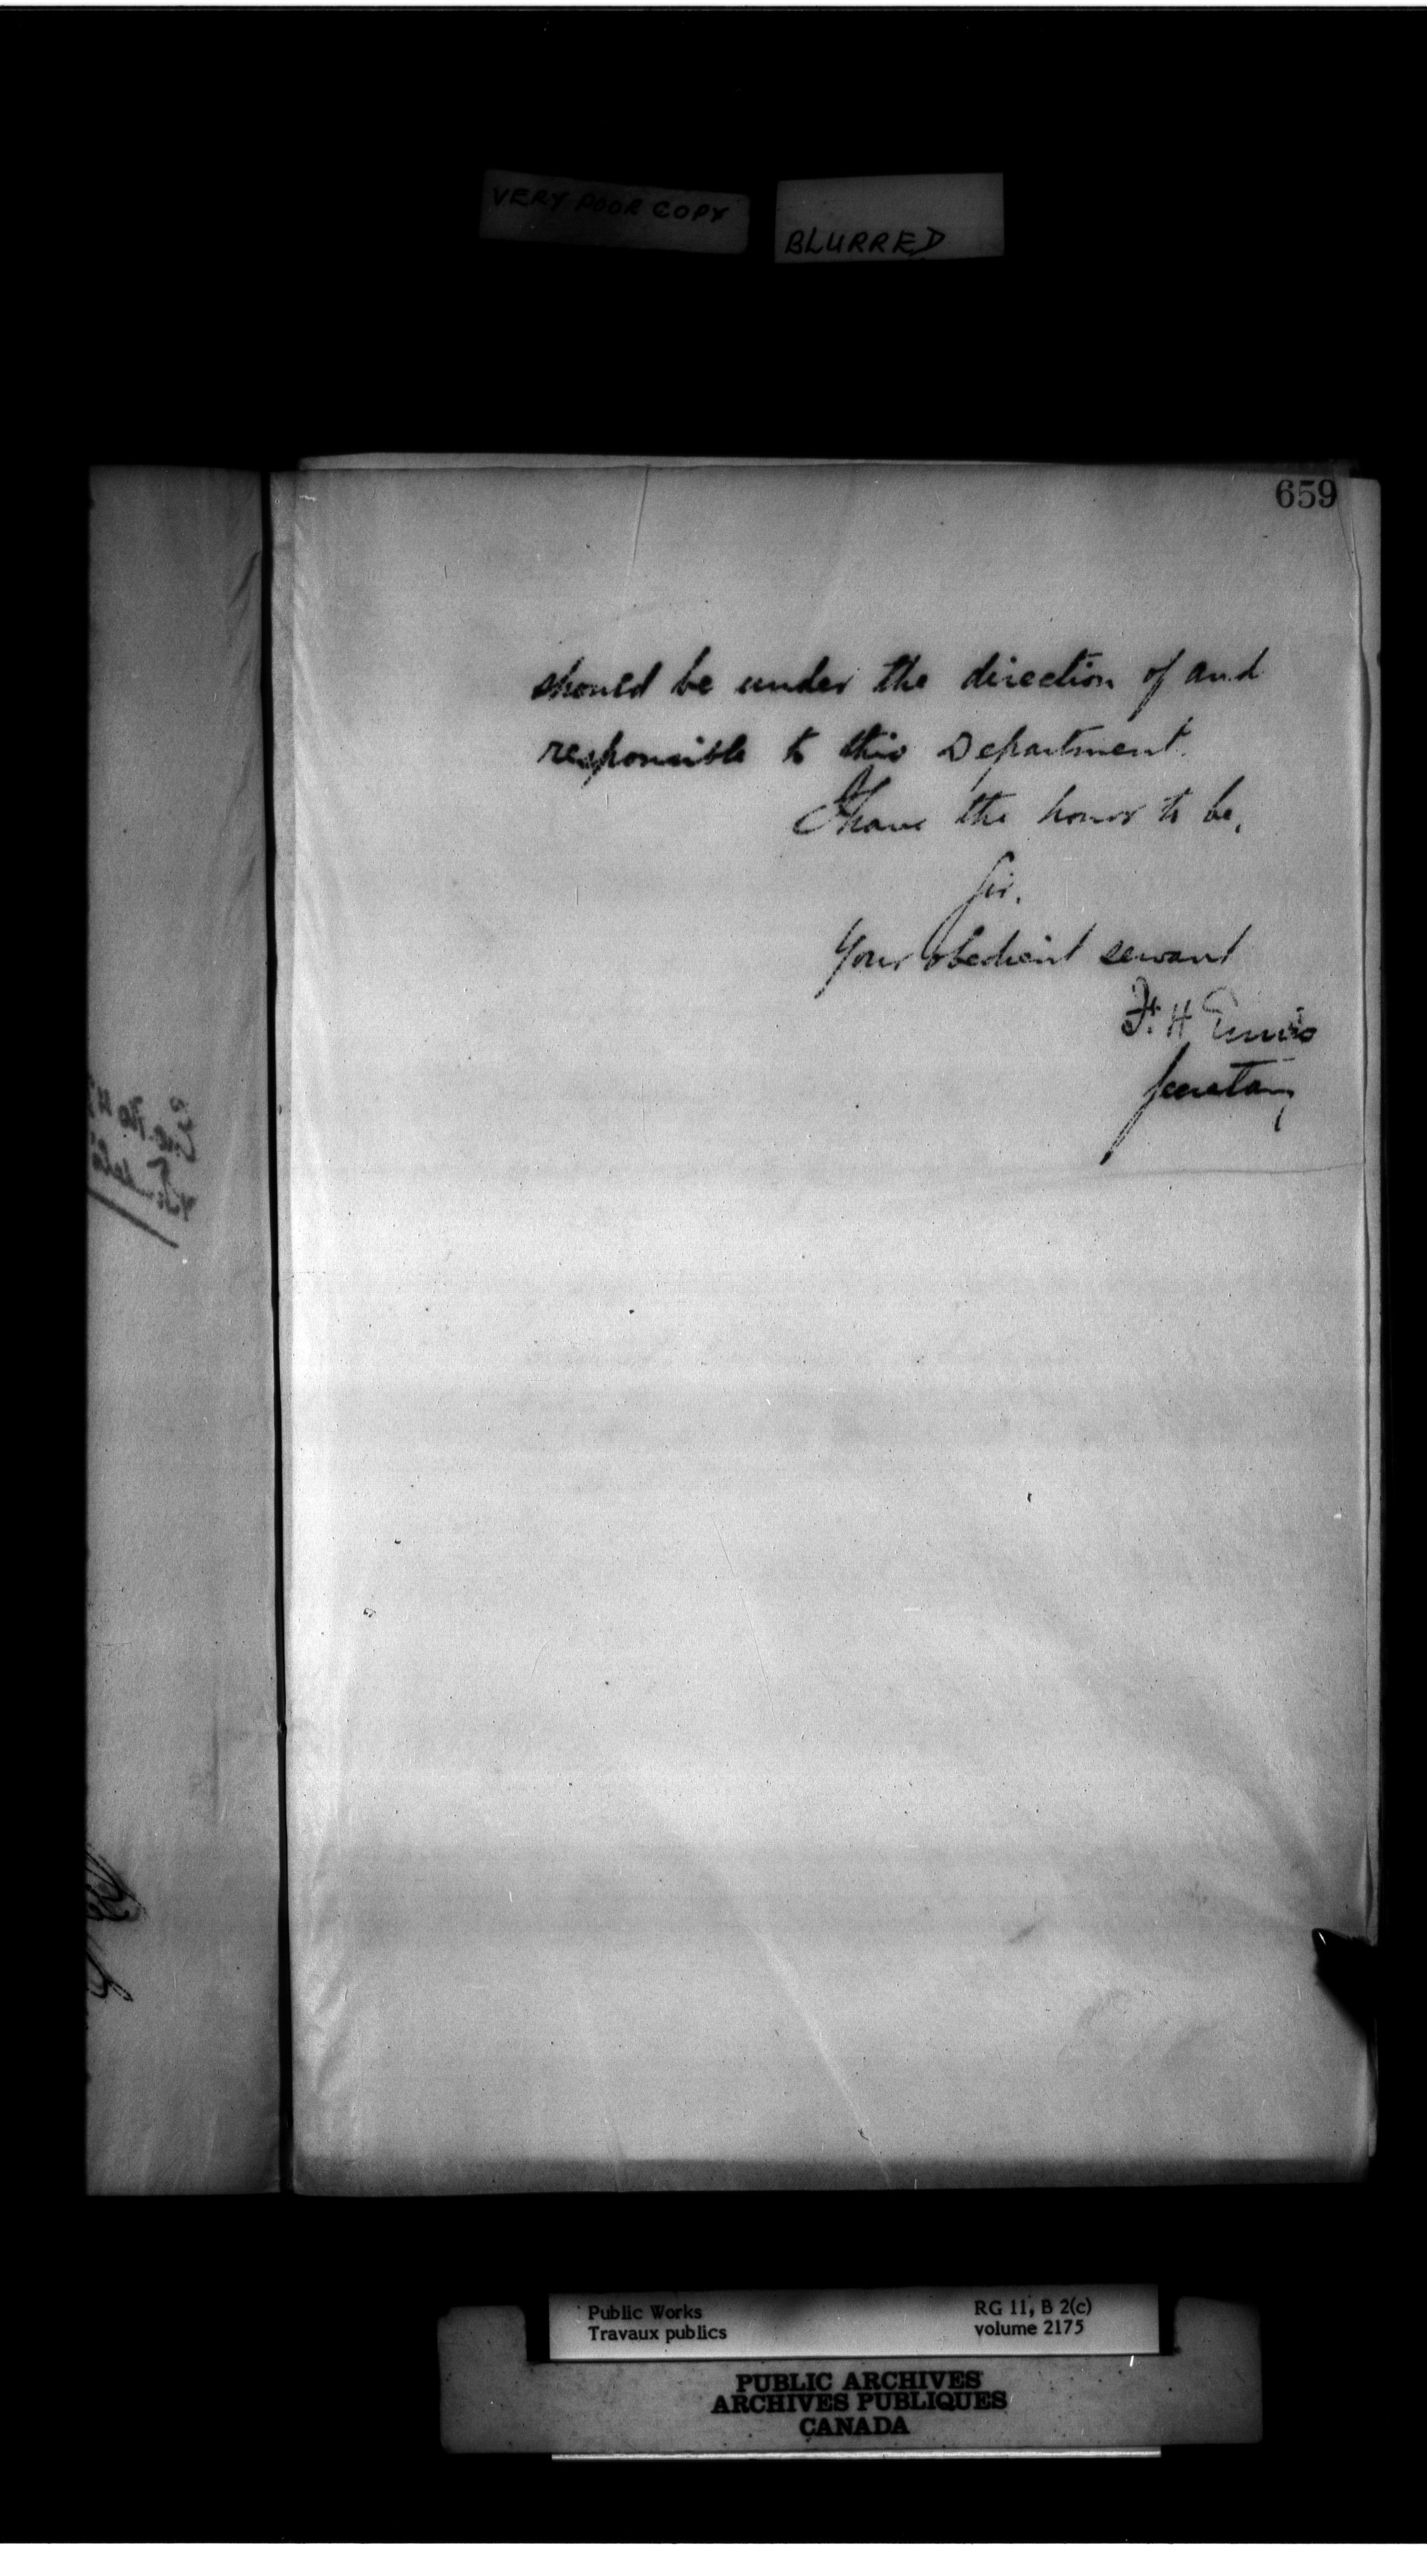 VERY POOR COPY
BLURRED
659
should be under the direction of and
responsible to this Department.
I have the honor to be,
Sir,
Your obedient servant
F. H. Ennis
Secretary
Public Works
Travaux publics
RG 11, B 2(c)
volume 2175
PUBLIC ARCHIVES
ARCHIVES PUBLIQUES
CANADA